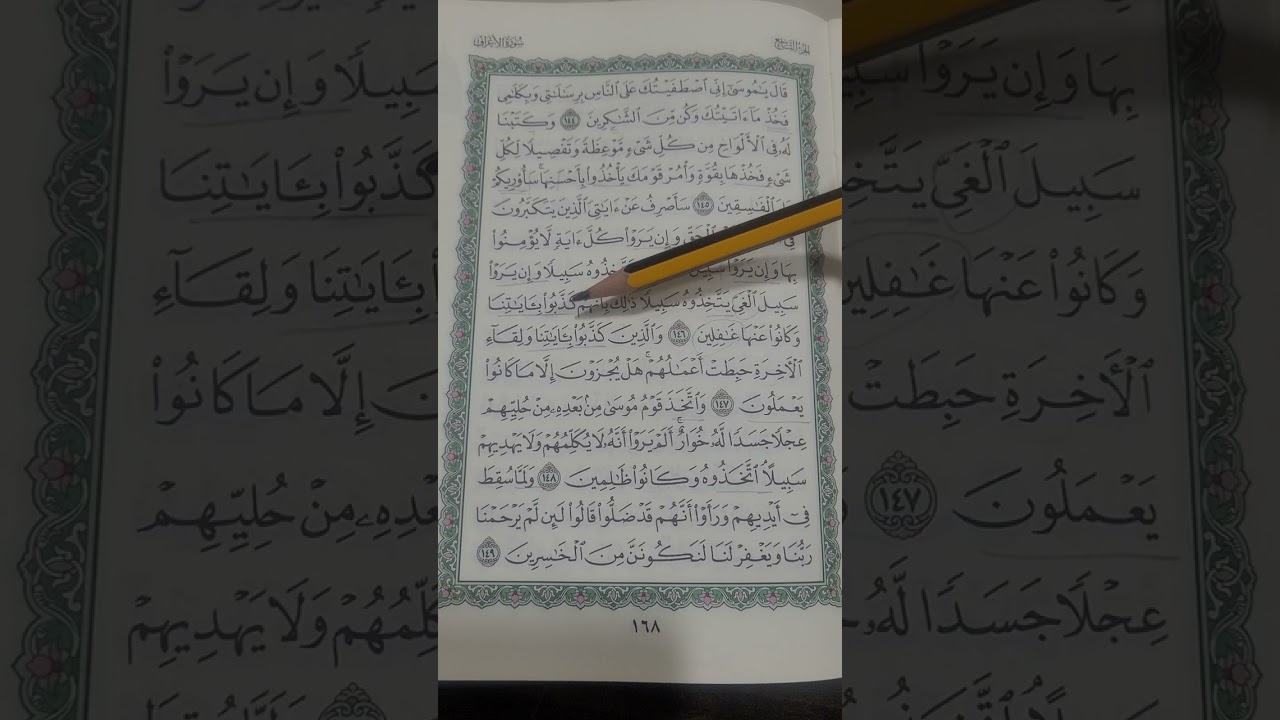 الجزء التاسع
سورة الأعراف
قَالَ يَٰمُوسَىٰٓ إِنِّي ٱصۡطَفَيۡتُكَ عَلَى ٱلنَّاسِ بِرِسَٰلَٰتِي وَبِكَلَٰمِي
فَخُذۡ مَآ ءَاتَيۡتُكَ وَكُن مِّنَ ٱلشَّٰكِرِينَ ١٤٤ وَكَتَبۡنَا
لَهُۥ فِي ٱلۡأَلۡوَاحِ مِن كُلِّ شَيۡءٖ مَّوۡعِظَةٗ وَتَفۡصِيلٗا لِّكُلِّ
شَيۡءٖ فَخُذۡهَا بِقُوَّةٖ وَأۡمُرۡ قَوۡمَكَ يَأۡخُذُواْ بِأَحۡسَنِهَاۚ سَأُوْرِيكُمۡ
ٱلۡفَٰسِقِينَ ١٤٥ سَأَصۡرِفُ عَنۡ ءَايَٰتِيَ ٱلَّذِينَ يَتَكَبَّرُونَ
فِي ٱلۡحَقِّ وَإِن يَرَوۡاْ كُلَّ ءَايَةٖ لَّا يُؤۡمِنُواْ
بِهَا وَإِن يَرَوۡاْ سَبِيلَ يَتَّخِذُوهُ سَبِيلٗا وَإِن يَرَوۡاْ
سَبِيلَ ٱلۡغَيِّ يَتَّخِذُوهُ سَبِيلٗاۚ ذَٰلِكَ بِأَنَّهُمۡ كَذَّبُواْ بِـَٔايَٰتِنَا
وَكَانُواْ عَنۡهَا غَٰفِلِينَ ١٤٦ وَٱلَّذِينَ كَذَّبُواْ بِـَٔايَٰتِنَا وَلِقَآءِ
ٱلۡأٓخِرَةِ حَبِطَتۡ أَعۡمَٰلُهُمۡۚ هَلۡ يُجۡزَوۡنَ إِلَّا مَا كَانُواْ
يَعۡمَلُونَ ١٤٧ وَٱتَّخَذَ قَوۡمُ مُوسَىٰ مِنۢ بَعۡدِهِۦ مِنۡ حُلِيِّهِمۡ
عِجۡلٗا جَسَدٗا لَّهُۥ خُوَارٌۚ أَلَمۡ يَرَوۡاْ أَنَّهُۥ لَا يُكَلِّمُهُمۡ وَلَا يَهۡدِيهِمۡ
سَبِيلًاۘ ٱتَّخَذُوهُ وَكَانُواْ ظَٰلِمِينَ ١٤٨ وَلَمَّا سُقِطَ
فِيٓ أَيۡدِيهِمۡ وَرَأَوۡاْ أَنَّهُمۡ قَدۡ ضَلُّواْ قَالُواْ لَئِن لَّمۡ يَرۡحَمۡنَا
رَبُّنَا وَيَغۡفِرۡ لَنَا لَنَكُونَنَّ مِنَ ٱلۡخَٰسِرِينَ ١٤٩
١٦٨